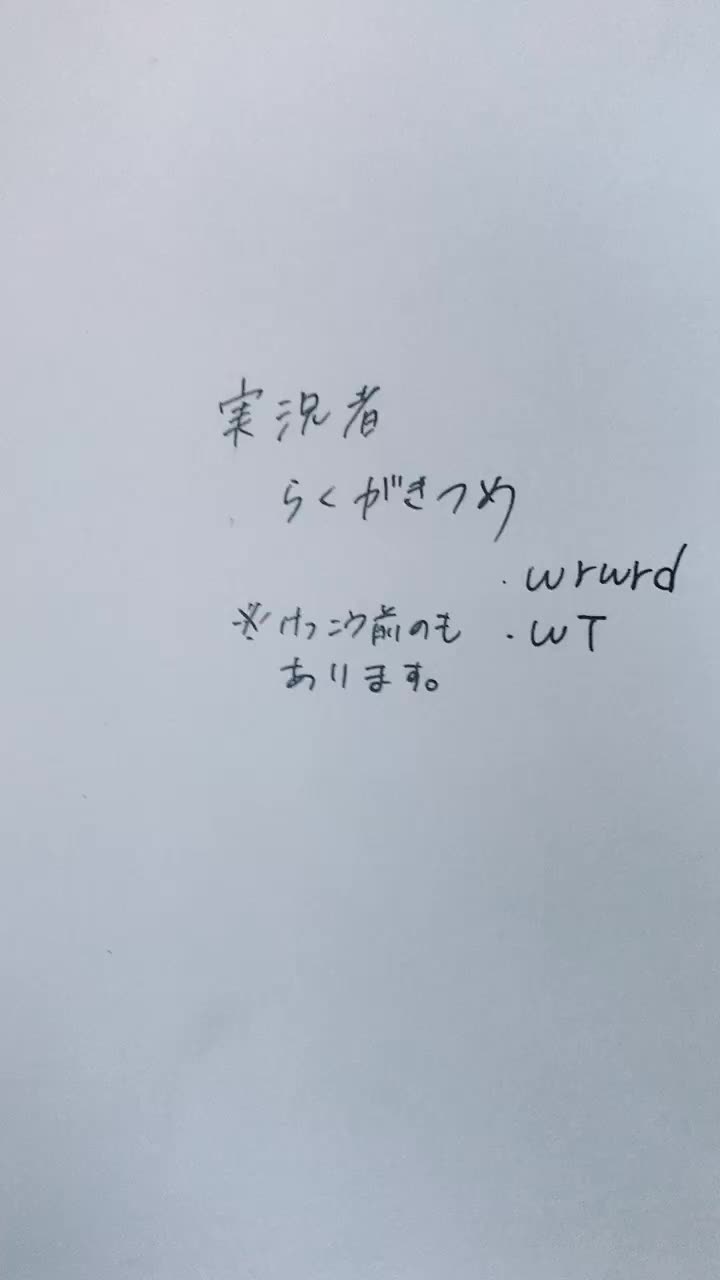 実況者
らくがきつめ
・wrwrd
・WT
※けっこう前のも
あります。